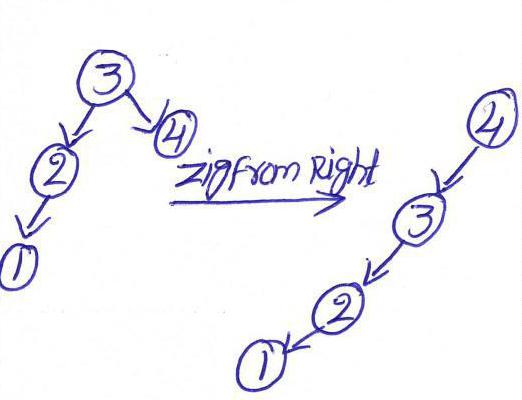 3
4
2
1
Zig From Right
4
3
2
1